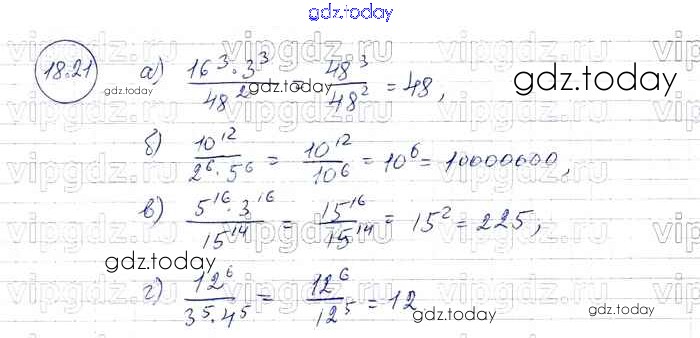 gdz.today
18.21 а) 16³·3³/48² = 48³/48² = 48,
gdz.today gdz.today gdz.today
б) 10¹²/2⁶·5⁶ = 10¹²/10⁶ = 10⁶ = 10000000,
в) 5¹⁶·3¹⁶/15¹⁴ = 15¹⁶/15¹⁴ = 15² = 225,
gdz.today
г) 12⁶/3⁵·4⁵ = 12⁶/12⁵ = 12
gdz.today gdz.today